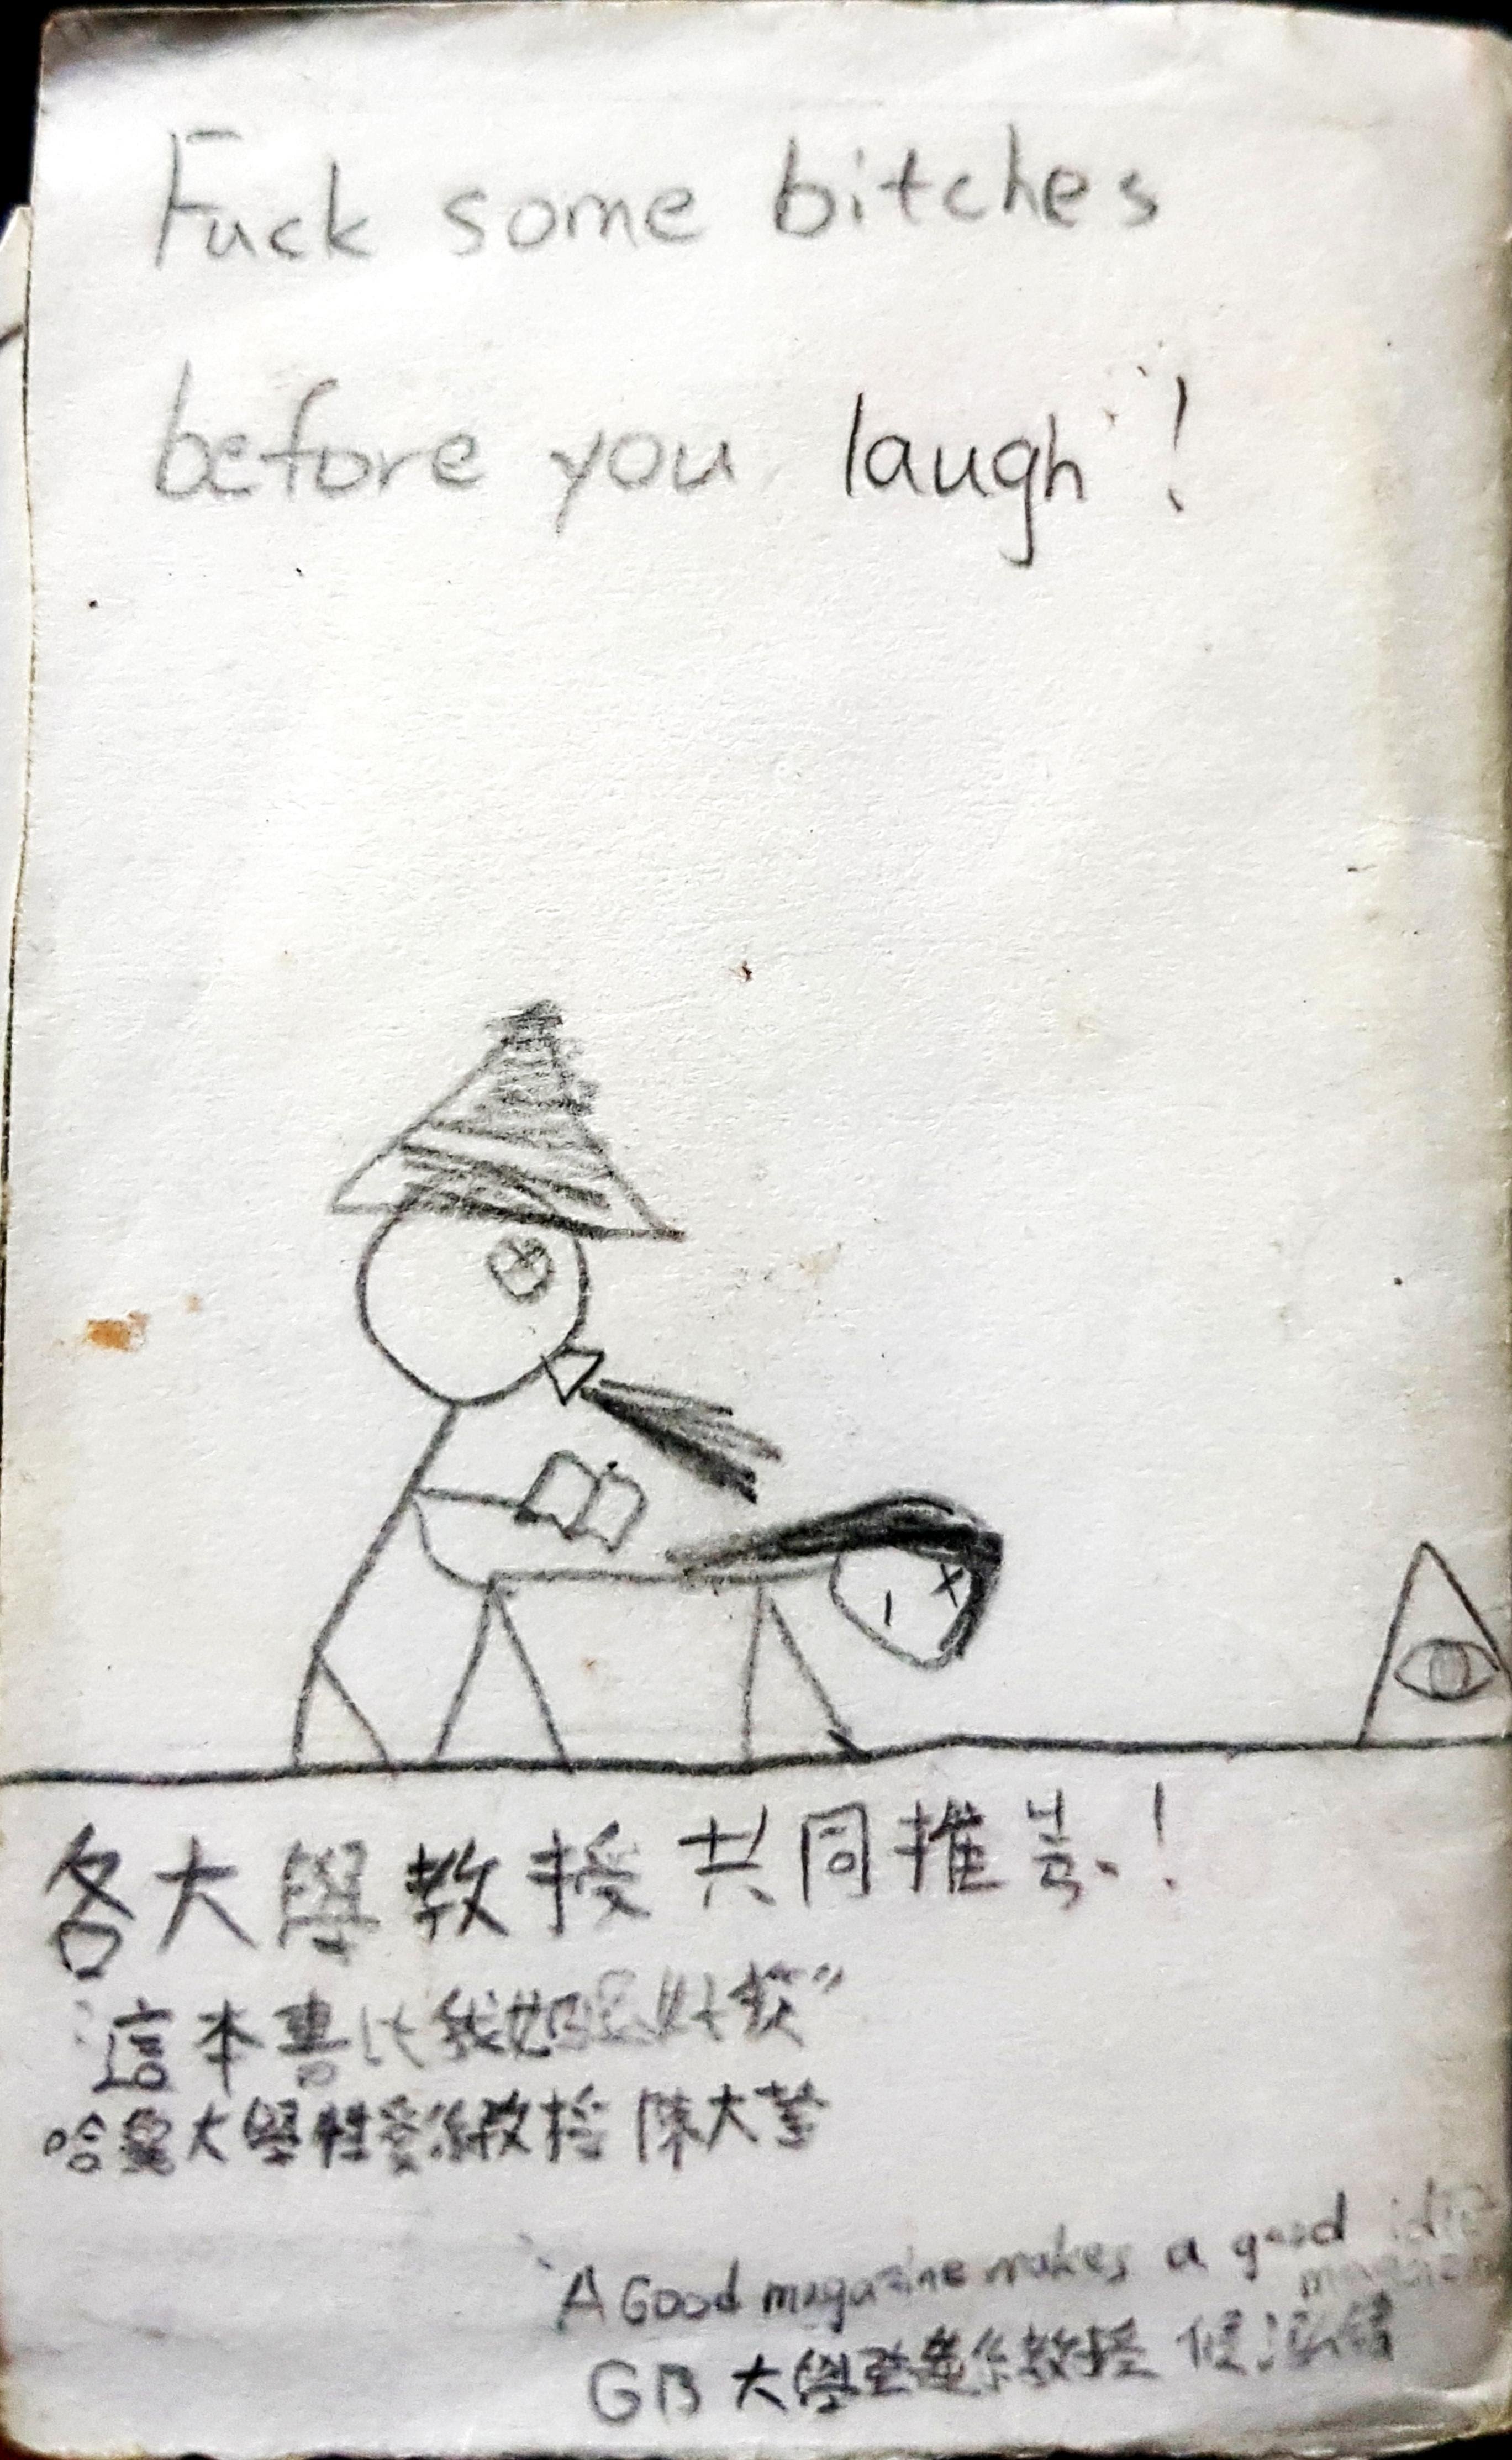 Fuck some bitches
before you laugh!
各大學教授共同推ㄐㄧㄢˋ!
這本書比我媽還好
哈 大學性愛系教授 陳大
"A Good magazine makes a good
GB 大學 教授